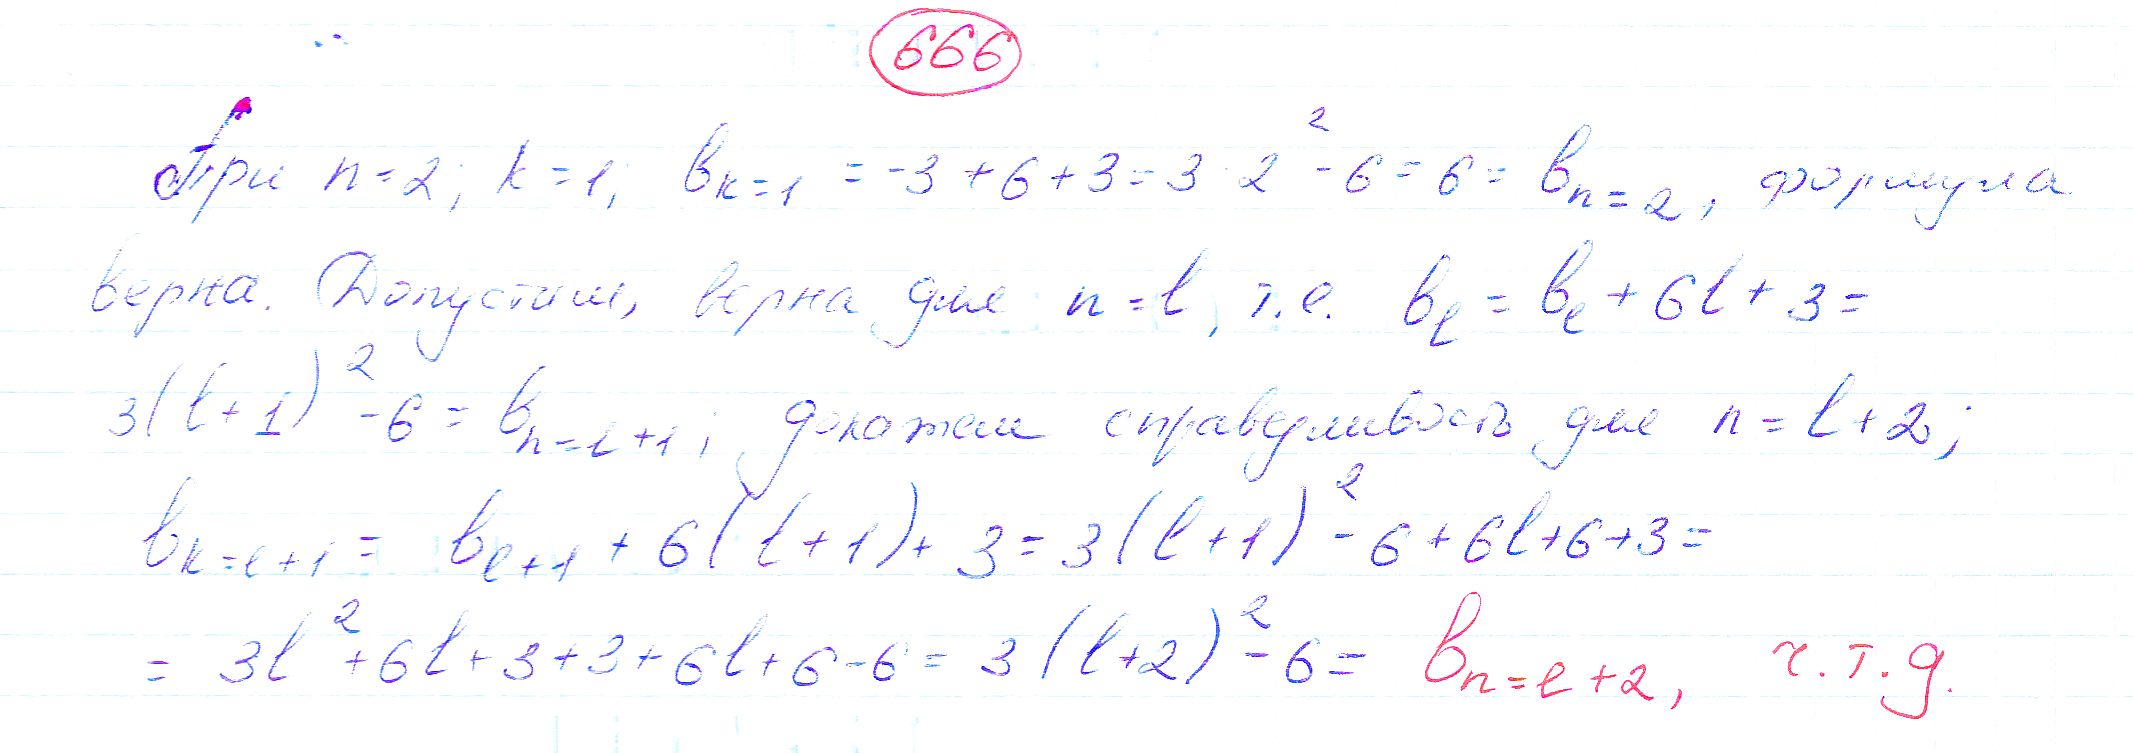 666
При n=2; k=1; b_{k=1} = -3+6+3=3·2²-6=6=b_{n=2}, формула
верна. Допустим, верна для n=l, т.е. b_l = b_l+6l+3=
3(l+1)²-6=b_{n=l+1}; докажем справедливость для n=l+2;
b_{k=l+1} = b_{l+1}+6(l+1)+3=3(l+1)²-6+6l+6+3=
= 3l²+6l+3+3+6l+6-6=3(l+2)²-6= b_{n=l+2}, ч.т.д.